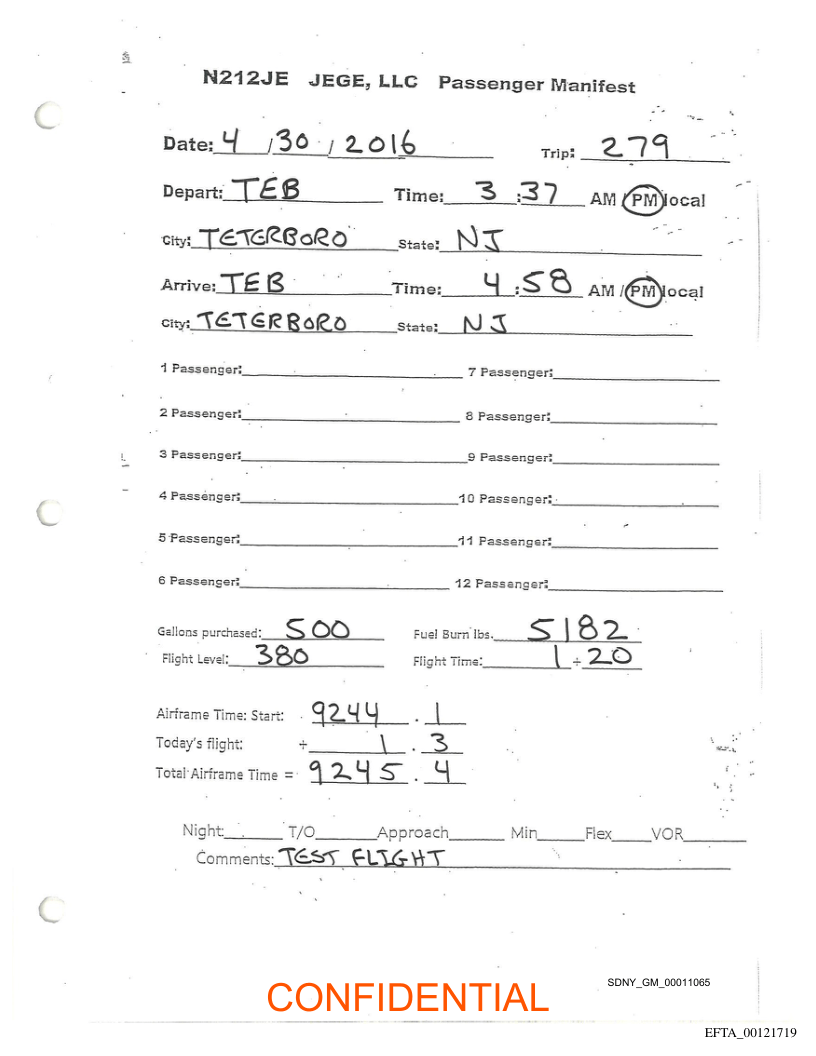 N212JE JEGE, LLC Passenger Manifest
Date: 4 / 30 / 2016 Trip: 279
Depart: TEB Time: 3 : 37 AM / PM local
City: TETERBORO State: NJ
Arrive: TEB Time: 4 : 58 AM / PM local
City: TETERBORO State: NJ
1 Passenger: 7 Passenger:
2 Passenger: 8 Passenger:
3 Passenger: 9 Passenger:
4 Passenger: 10 Passenger:
5 Passenger: 11 Passenger:
6 Passenger: 12 Passenger:
Gallons purchased: 500 Fuel Burn lbs. 5182
Flight Level: 380 Flight Time: 1 + 20
Airframe Time: Start: 9244 . 1
Today's flight: + 1 . 3
Total Airframe Time = 9245 . 4
Night: T/O Approach Min Flex VOR
Comments: TEST FLIGHT
SDNY_GM_00011065
CONFIDENTIAL
EFTA_00121719